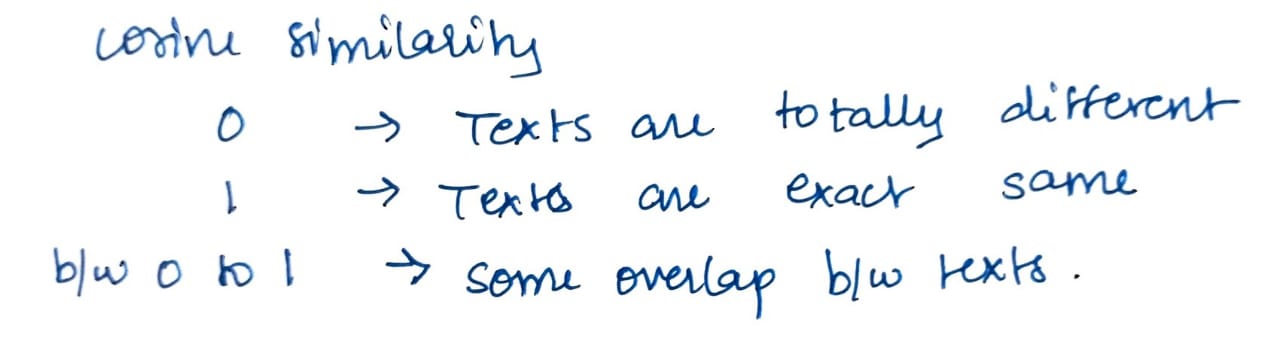 cosine similarity
0 → Texts are totally different
1 → Texts are exact same
b/w 0 to 1 → some overlap b/w texts.